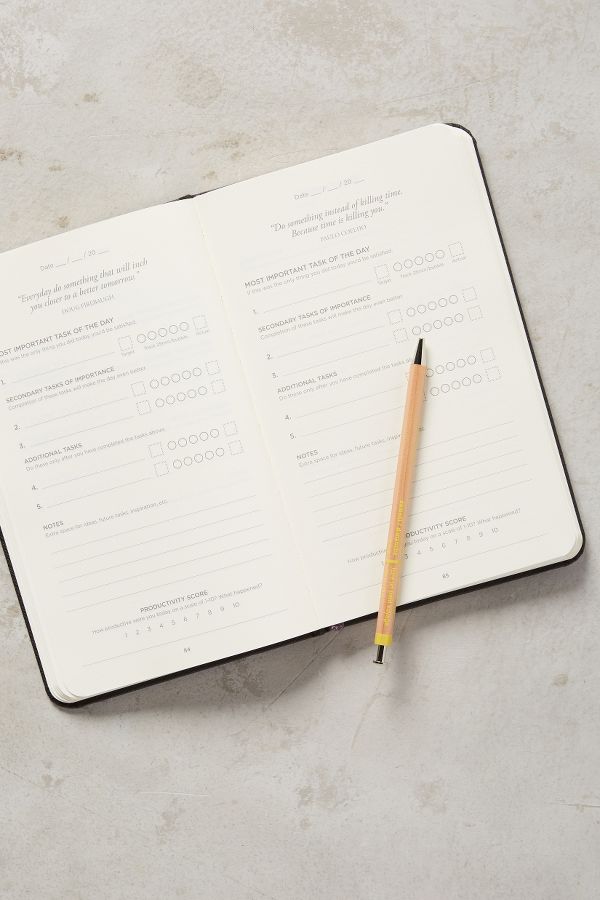 Date __ / __ / 20 __
"Everyday do something that will inch
you closer to a better tomorrow."
DOUG FIREBAUGH
MOST IMPORTANT TASK OF THE DAY
If this was the only thing you did today you'd be satisfied.
1.
Target
Track 25min/bubble
Actual
SECONDARY TASKS OF IMPORTANCE
Completion of these tasks will make the day even better
2.
3.
ADDITIONAL TASKS
Do these only after you have completed the tasks above
4.
5.
NOTES
Extra space for ideas, future tasks, inspiration, etc.
PRODUCTIVITY SCORE
How productive were you today on a scale of 1-10? What happened?
1 2 3 4 5 6 7 8 9 10
84
Date __ / __ / 20 __
"Do something instead of killing time.
Because time is killing you."
PAULO COELHO
MOST IMPORTANT TASK OF THE DAY
If this was the only thing you did today you'd be satisfied.
1.
Target
Track 25min/bubble
Actual
SECONDARY TASKS OF IMPORTANCE
Completion of these tasks will make the day even better
2.
3.
ADDITIONAL TASKS
Do these only after you have completed the
4.
5.
NOTES
Extra space for ideas, future tasks,
PRODUCTIVITY SCORE
How productive you today on a scale of 1-10? What happened?
3 4 5 6 7 8 9 10
85